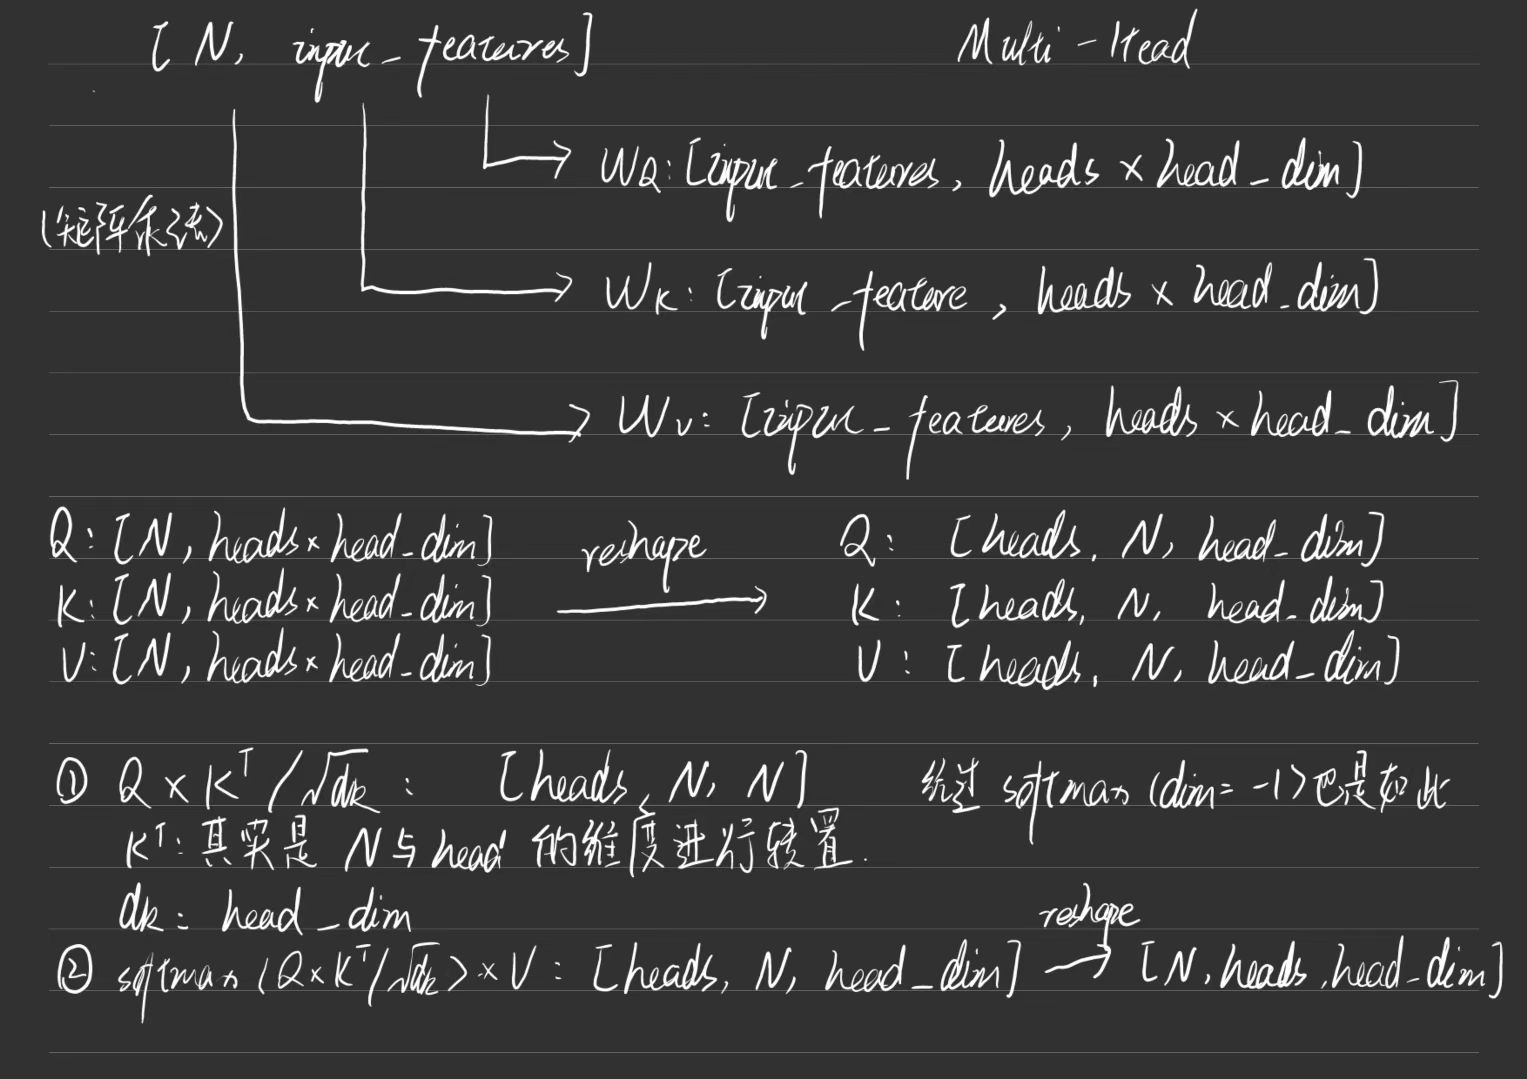 [N, input_features]
Multi-Head
WQ: [input_features, heads × head_dim]
(矩阵乘法)
WK: [input_feature, heads × head_dim]
WV: [input_features, heads × head_dim]
Q: [N, heads × head_dim] reshape Q: [heads, N, head_dim]
K: [N, heads × head_dim] K: [heads, N, head_dim]
V: [N, heads × head_dim] V: [heads, N, head_dim]
① Q × K^T / √dk : [heads, N, N] 经过 softmax (dim = -1) 也是如此
K^T: 其实是 N 与 head 的维度进行转置.
dk: head_dim
reshape
② softmax (Q × K^T / √dk) × V : [heads, N, head_dim] → [N, heads, head_dim]